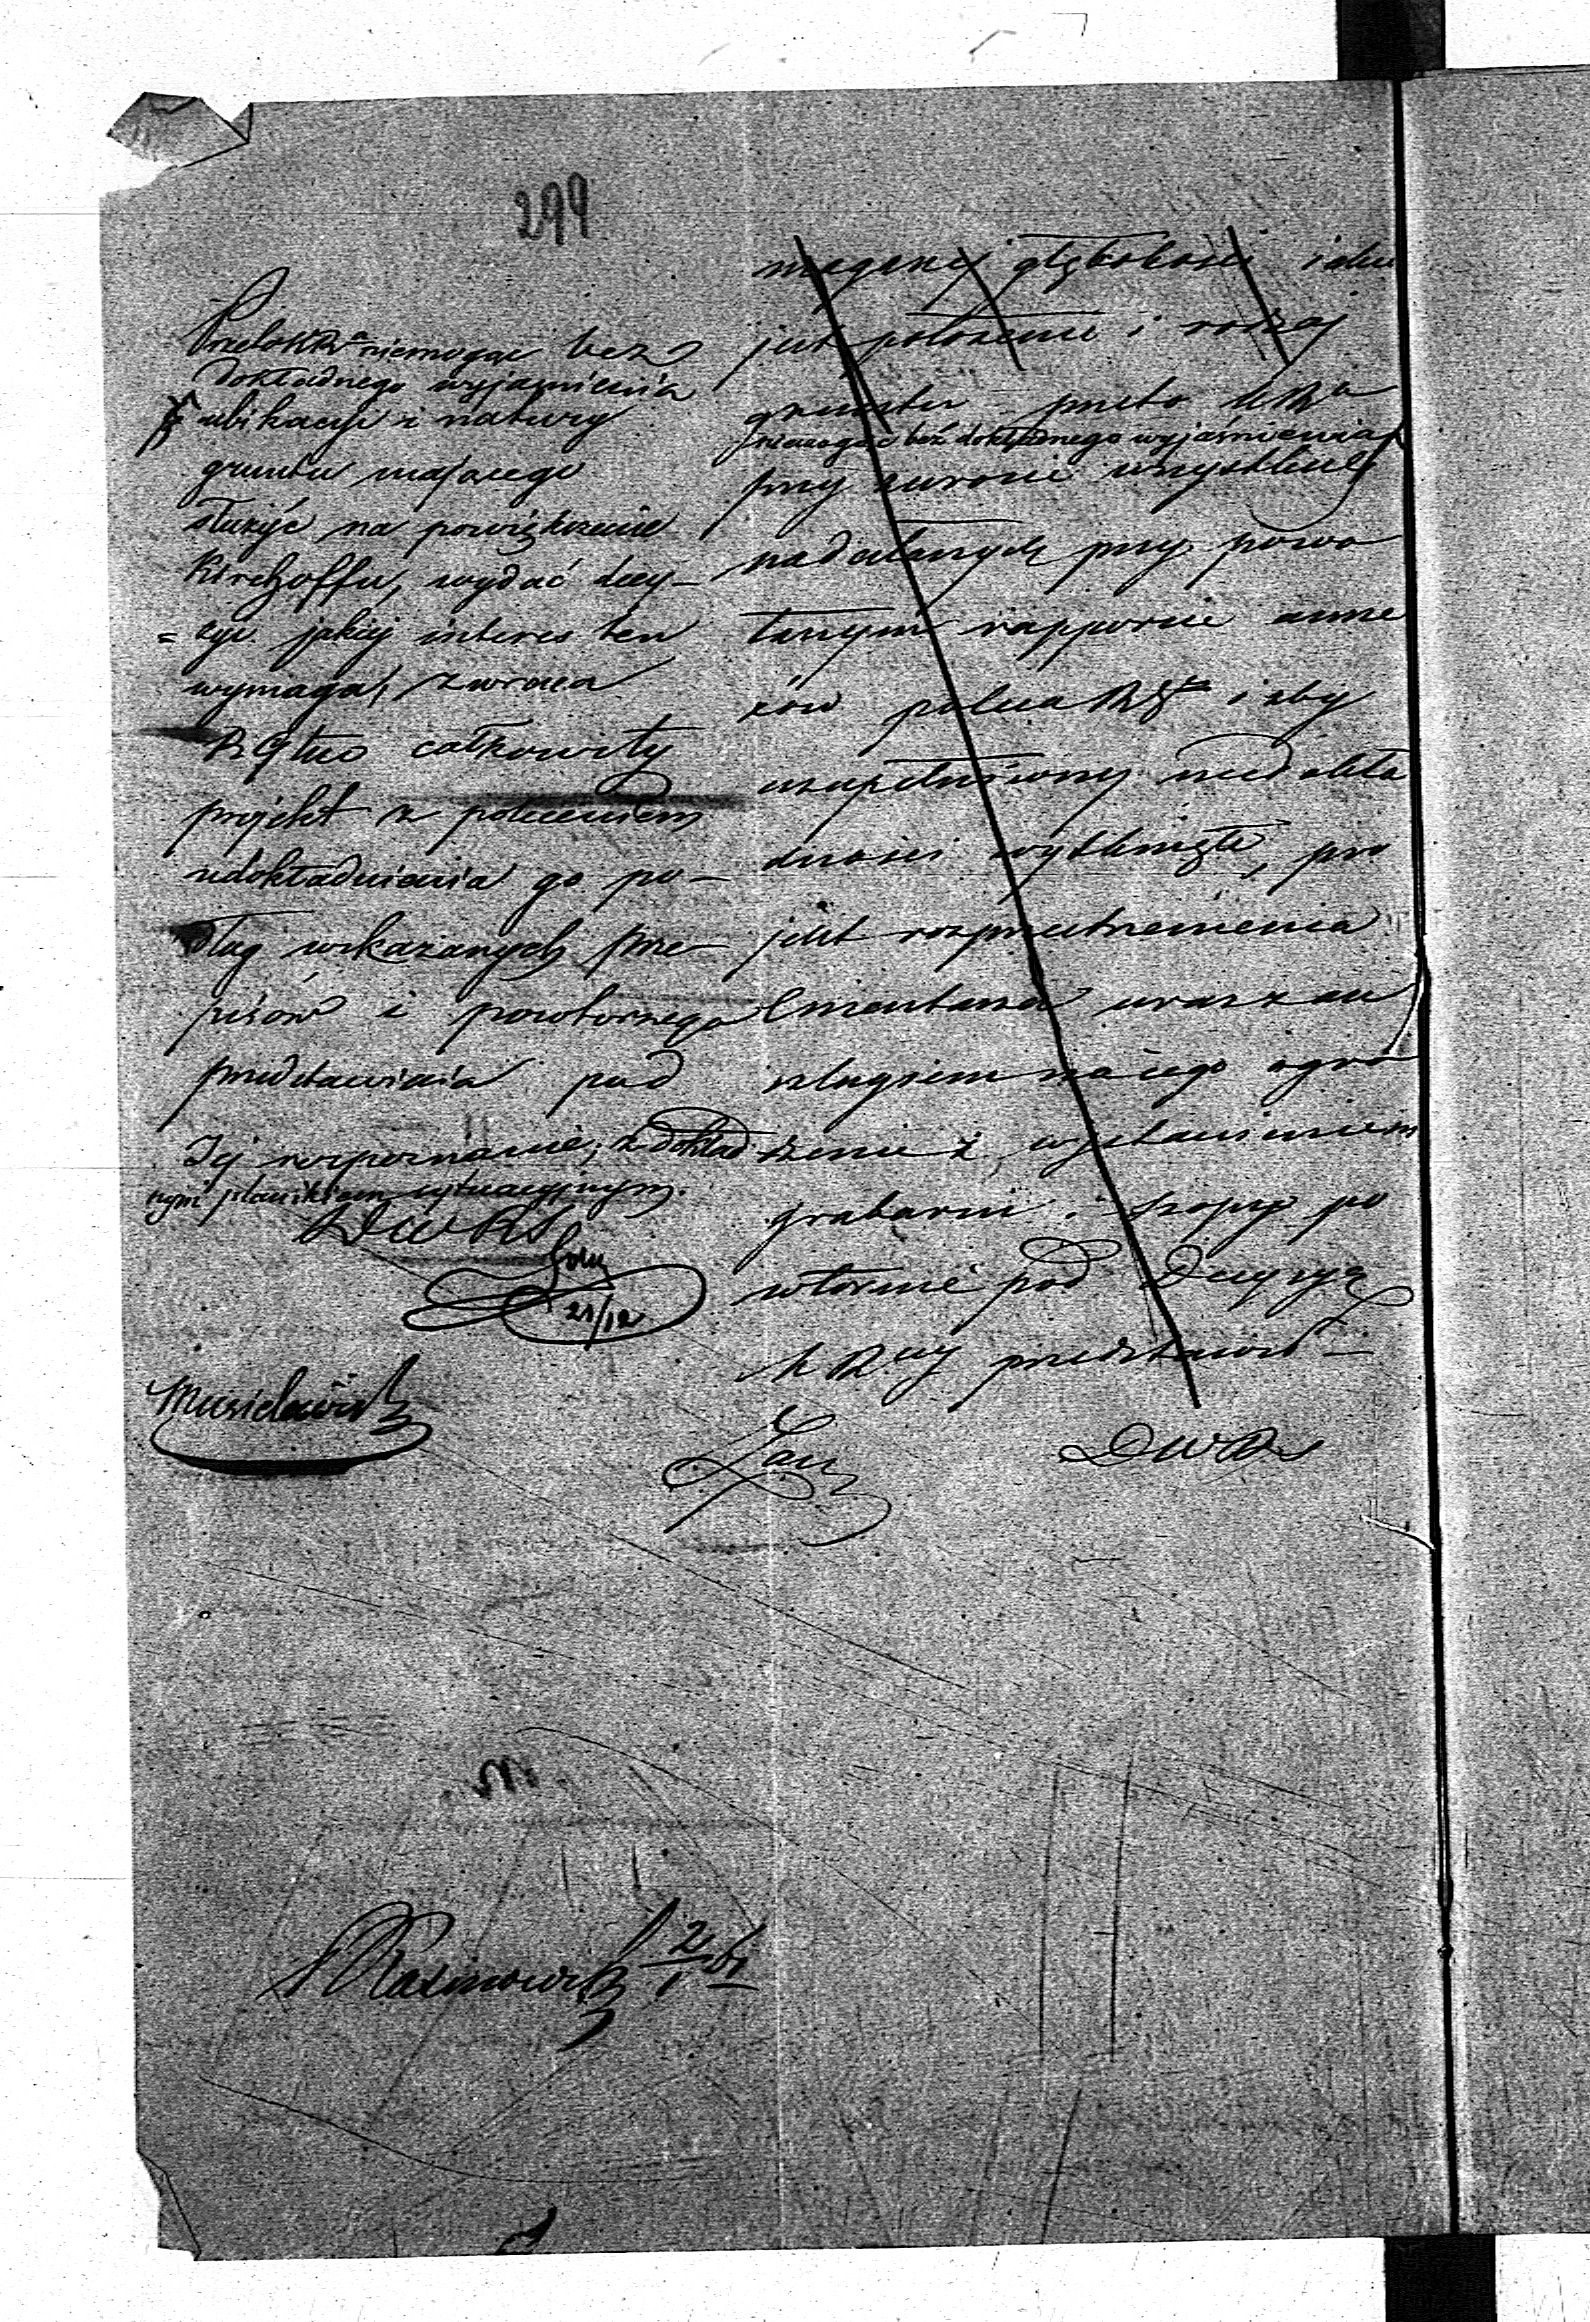 299
Przeto KRa niemogąc bez
dokładnego wyjaśnienia
ubikacyi i natury
gruntu mającego
służyć na powiększenie
Kirchoffu, wydać decy-
=zyi jakiej interes ten
wymaga, zwraca
RGtwo całkowity
projekt z poleceniem
udokładnienia go po-
dług wskazanych prze-
pisów i powtornego
przedstawienia pod
Jej rozpoznanie, z dokład
nym planikiem sytuacyjnym.
DWRS
21/12
maganej głębokości i
jest położenie i rodzaj
gruntu przeto KRa
niemogąc bez dokładnego wyjaśnienia
przy zwrocie wszystkich
nadesłanych przy powo
łanym rapporcie anne
xów poleca RGt i aby
uzupełniwszy niedokła
dności wytknięte, pro
jekt rozprzestrzenienia
Cmentarza wraz z an
szlagiem na jego ogro
dzenie z wystawieniem
grabarni i szopy po
wtornie pod Decyzyą
KRwy przedstawił -
DWRS